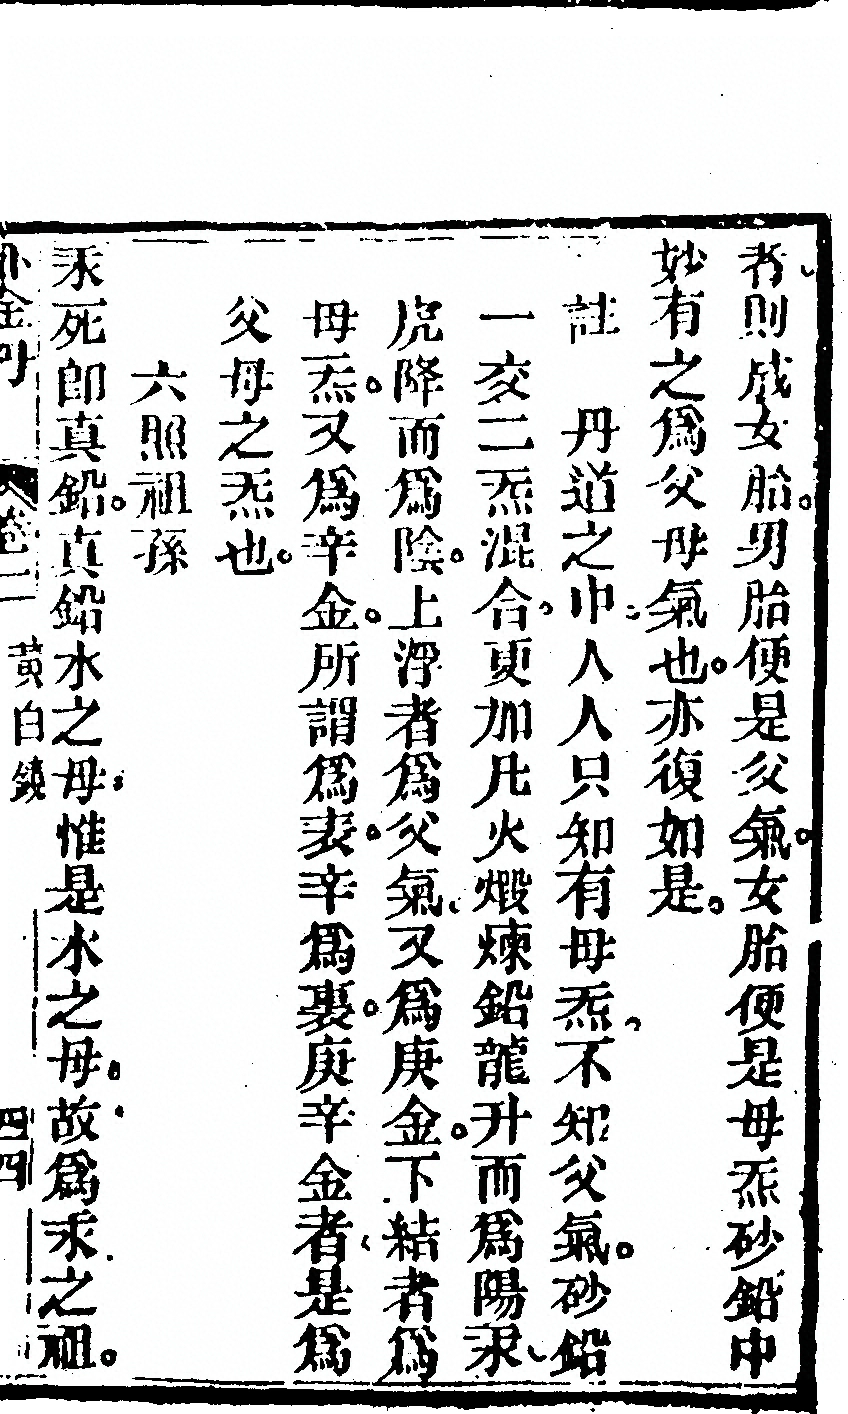 者則成女胎男胎便是父氣女胎便是母炁砂鉛中
妙有之爲父母氣也亦復如是
註 丹道之中人人只知有母炁不知父氣砂鉛
一交二炁混合更加凡火煅煉鉛龍升而爲陽汞
虎降而爲陰上浮者爲父氣又爲庚金下結者爲
母炁又爲辛金所謂爲表辛爲裹庚辛金者是爲
父母之炁也
六照祖孫
汞死卽真鉛真鉛水之母惟是水之母故爲汞之祖
卷一 黃白鏡 四四